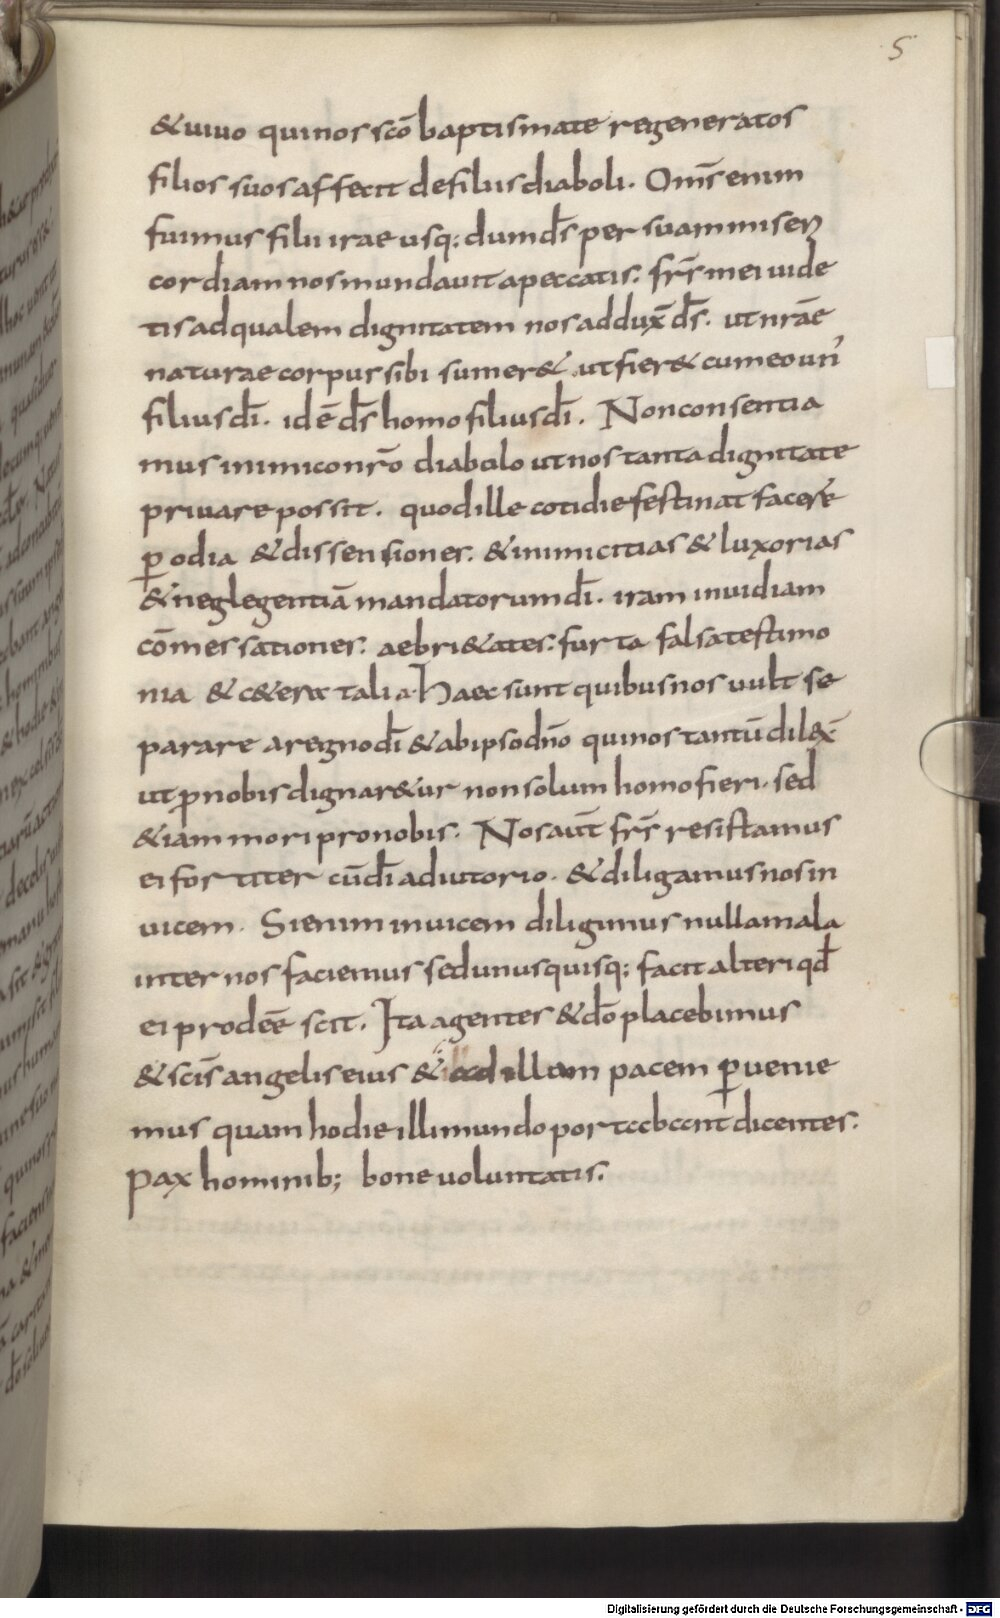 5
& uiuo quinos scō baptismate regeneratos
filios suos affecit de filiis diaboli. Om̄s enim
fuimus filii irae usq; dum d̄s per suam miser
cordiam nos mundauit a peccatis. fr̄s mei uide
tis ad qualem dignitatem nos addux̄ d̄s. ut nrāe
naturae corpus sibi sumer& ut fier& cum eo un'
filius dī. id ē d̄s homo filius dī. Non consentia
mus inimico nr̄o diabolo ut nos tanta dignitate
priuare possit. quod ille cotidie festinat facere
ꝑ odia & dissensiones. & inimicitias & luxorias
& neglegentiā mandatorum dī. iram inuidiam
cōmessationes. aebri&ates. furta falsa testimo
nia & c&era talia. Haec sunt quibus nos uult se
parare a regno dī & ab ipso dn̄o qui nos tantū dilex̄
ut p nobis dignar&ur non solum homo fieri. sed
&iam mori pro nobis. Nos aūt fr̄s resistamus
ei fortiter cū dī adiutorio. & diligamus nos in
uicem. Si enim inuicem diligimus nulla mala
inter nos faciemus sed unusquisq; facit alteri qđ
ei prodeē scit. Ita agentes & dō placebimus
& scīs angelis eius & ad illam pacem ꝑuenie
mus quam hodie illi mundo portabant dicentes.
Pax hominib; bone uoluntatis.
Digitalisierung gefördert durch die Deutsche Forschungsgemeinschaft - DFG